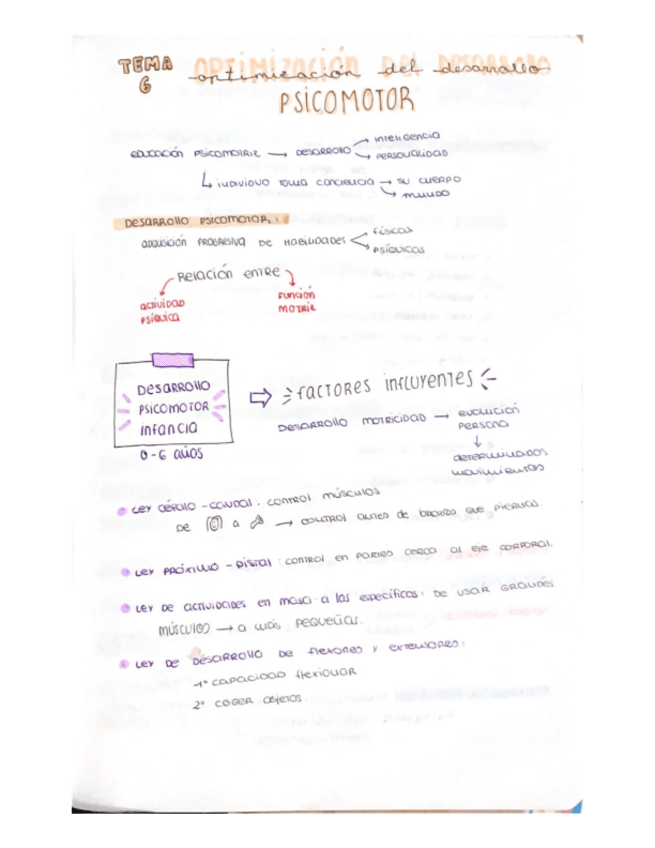 TEMA 6 optimización del desarrollo
PSICOMOTOR
educación psicomotriz → desarrollo → inteligencia
→ personalidad
↳ individuo toma conciencia → su cuerpo
→ mundo
Desarrollo psicomotor:
adquisición progresiva de habilidades < físicas
psíquicas
Relación entre
actividad psíquica
función motriz
Desarrollo
psicomotor
infancia
0-6 años
⇨ factores influyentes
Desarrollo motricidad → evolución persona
↓
determinados movimientos
Ley céfalo-caudal: control músculos
de a → control antes de brazos que piernas
Ley próximo-distal: control en partes cerca al eje corporal
Ley de actividades en masa a las específicas: de usar grandes
músculos → a más pequeñas.
Ley de desarrollo de flexores y extensores:
1º capacidad flexionar
2º coger objetos